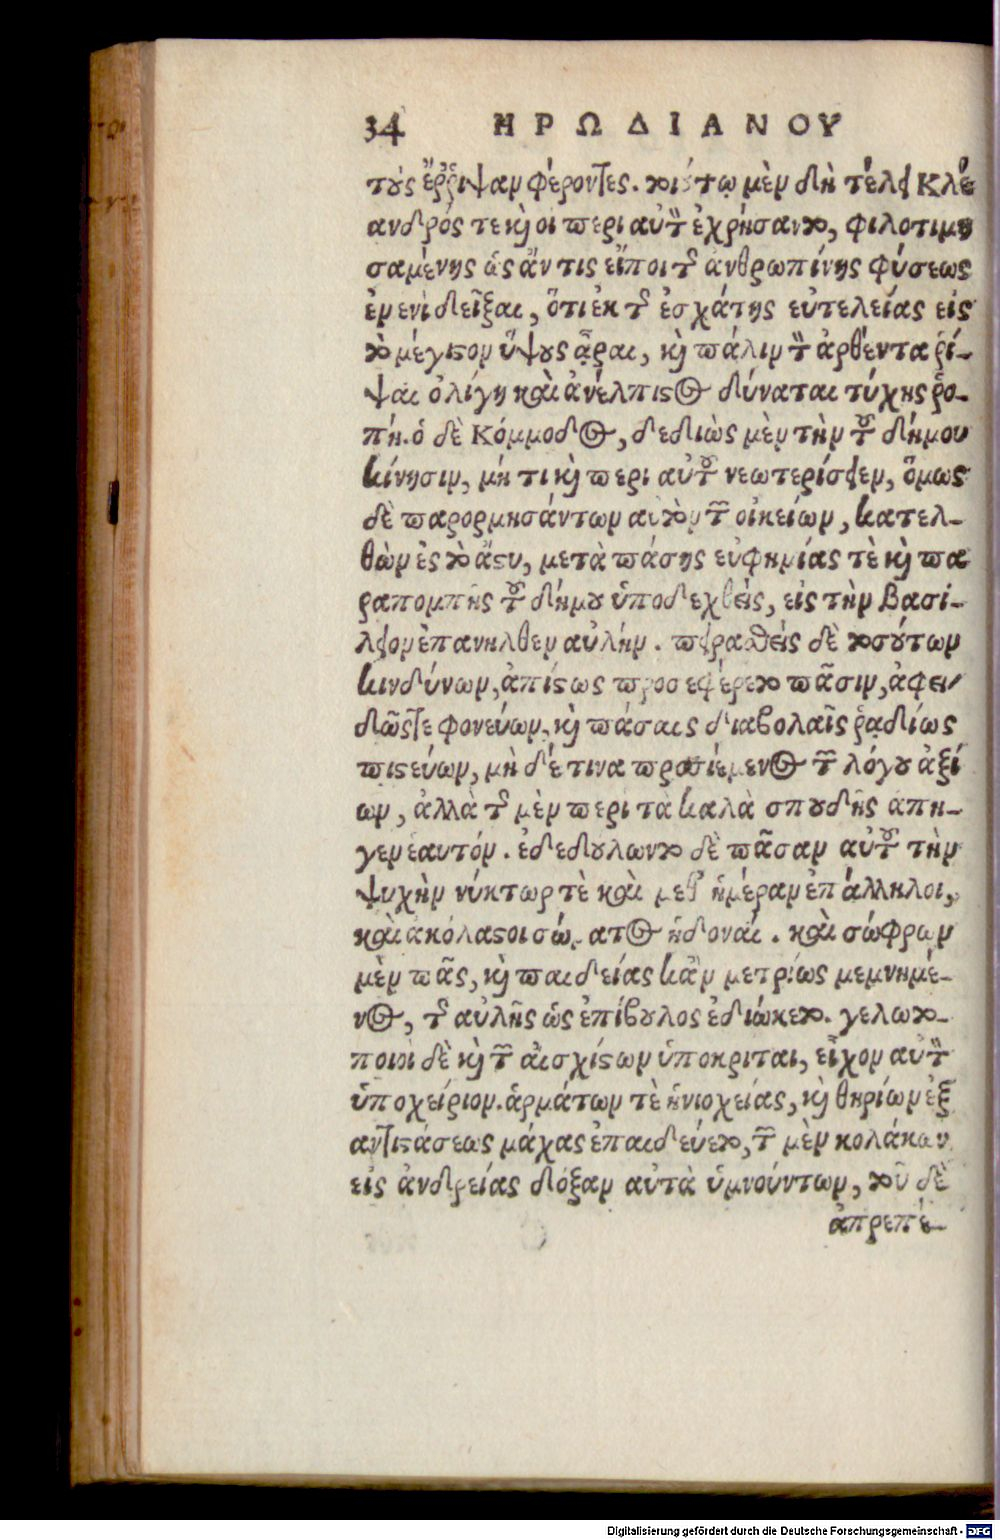 34 ΗΡΩΔΙΑΝΟΥ
τοὺς ἔρριψαν φέροντες. τοιούτῳ μὲν δὴ τέλει Κλέ
ανδρός τε καὶ οἱ περὶ αὐτὸν ἐχρήσαντο, φιλοτιμη
σαμένης ὡς ἄν τις εἴποι τῆς ἀνθρωπίνης φύσεως
ἐν ἑνὶ δεῖξαι, ὅτι ἐκ τῆς ἐσχάτης εὐτελείας εἰς
τὸ μέγιστον ὕψους ἆραι, καὶ πάλιν τὸν ἀρθέντα ῥί-
ψαι ὀλίγη καὶ ἀνέλπιστος δύναται τύχης ῥο-
πή. ὁ δὲ Κόμμοδος, δεδιὼς μὲν τὴν τοῦ δήμου
κίνησιν, μή τι καὶ περὶ αὐτοῦ νεωτερίσειεν, ὅμως
δὲ παρορμησάντων αὐτὸν τῶν οἰκείων, κατελ-
θὼν ἐς τὸ ἄστυ, μετὰ πάσης εὐφημίας τὲ καὶ πα
ραπομπῆς τοῦ δήμου ὑποδεχθεὶς, εἰς τὴν βασί-
λειον ἐπανῆλθεν αὐλήν. πειραθεὶς δὲ τοσούτων
κινδύνων, ἀπίστως προσεφέρετο πᾶσιν, ἀφει-
δῶς τε φονεύων, καὶ πάσαις διαβολαῖς ῥᾳδίως
πιστεύων, μὴ δέ τινα προσιέμενος τῶν λόγου ἀξί
ων, ἀλλὰ τῆς μὲν περὶ τὰ καλὰ σπουδῆς ἀπῆ-
γεν ἑαυτόν. ἐδεδούλωντο δὲ πᾶσαν αὐτοῦ τὴν
ψυχὴν νύκτωρ τὲ καὶ μεθ' ἡμέραν ἐπάλληλοι,
καὶ ἀκόλαστοι σώματος ἡδοναί. καὶ σώφρων
μὲν πᾶς, καὶ παιδείας κἂν μετρίως μεμνημέ-
νος, τῆς αὐλῆς ὡς ἐπίβουλος ἐδιώκετο. γελωτο-
ποιοὶ δὲ καὶ τῶν αἰσχίστων ὑποκριταὶ, εἶχον αὐτὸν
ὑποχείριον. ἁρμάτων τὲ ἡνιοχείας, καὶ θηρίων ἐξ
ἀντιστάσεως μάχας ἐπαιδεύετο, τῶν μὲν κολάκων
εἰς ἀνδρείας δόξαν αὐτὰ ὑμνούντων, τοῦ δὲ
ἀπρεπέ-
Digitalisierung gefördert durch die Deutsche Forschungsgemeinschaft - DFG